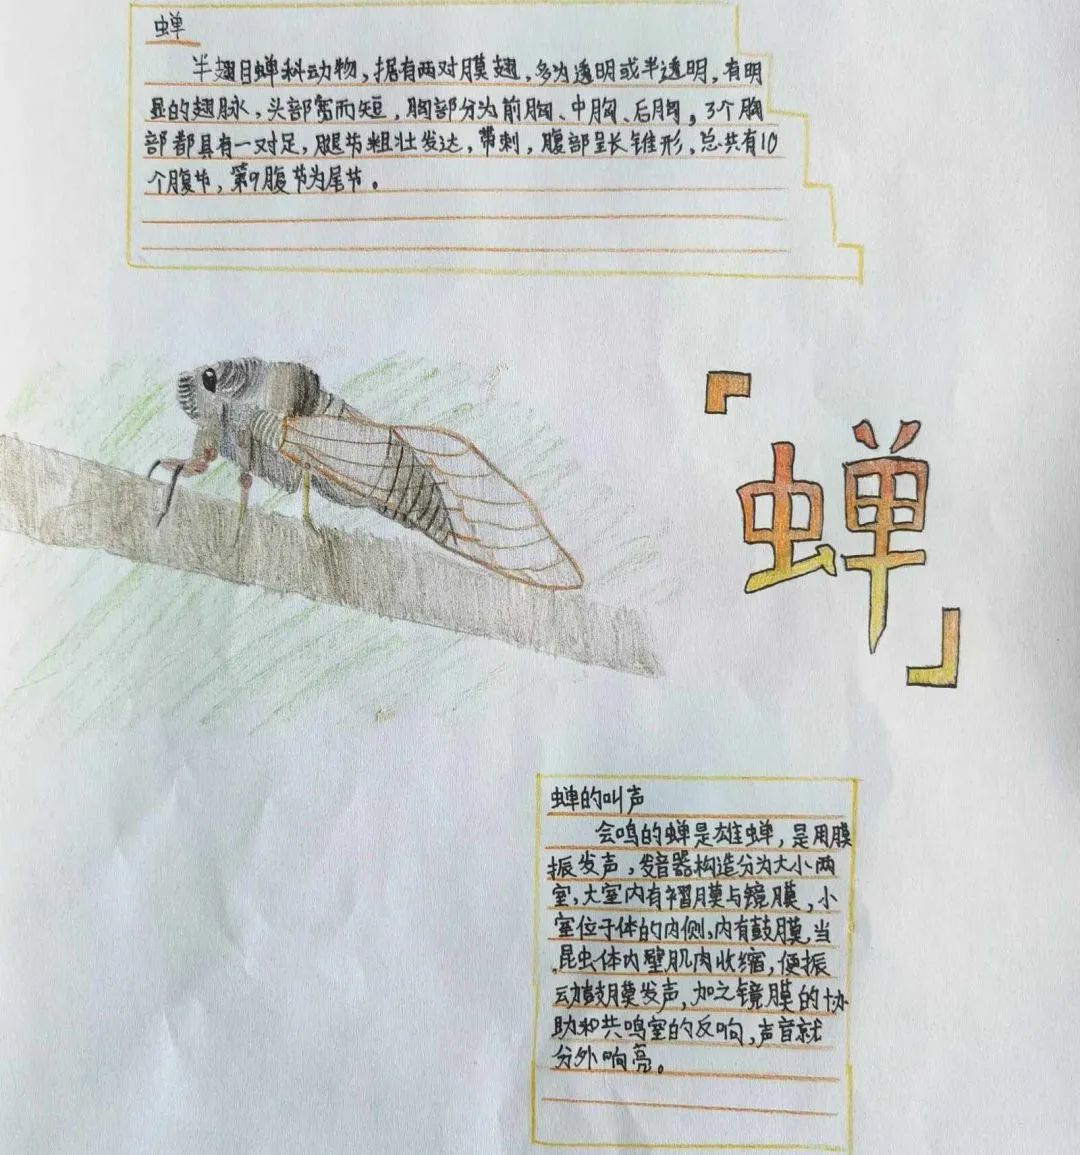 蝉
半翅目蝉科动物,据有两对膜翅,多为透明或半透明,有明
显的翅脉,头部宽而短,胸部分为前胸、中胸、后胸。3个胸
部都具有一对足,腿节粗壮发达,带刺,腹部呈长锥形,总共有10
个腹节,第9腹节为尾节。
「蝉」
蝉的叫声
会鸣的蝉是雄蝉,是用膜
振发声,发音器构造分为大小两
室,大室内有褶膜与镜膜,小
室位于体的内侧,内有鼓膜,当
昆虫体内壁肌肉收缩,便振
动鼓膜发声,加之镜膜的协
助和共鸣室的反响,声音就
分外响亮。